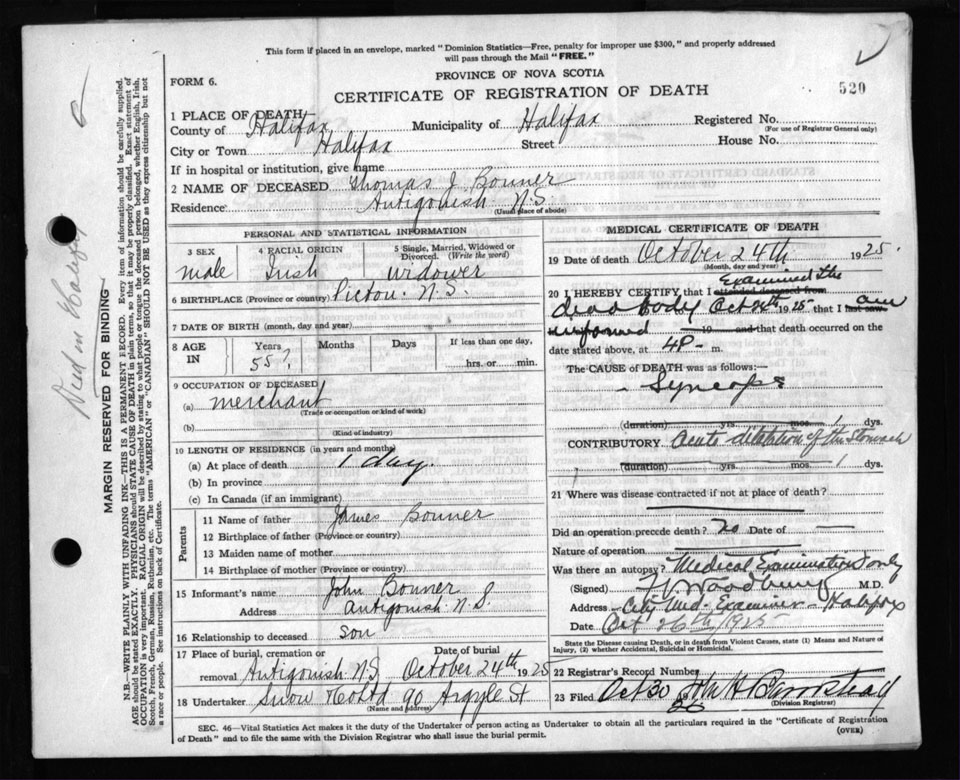 This form if placed in an envelope, marked "Dominion Statistics—Free, penalty for improper use $300," and properly addressed
will pass through the Mail "FREE."
FORM 6.
PROVINCE OF NOVA SCOTIA
520
CERTIFICATE OF REGISTRATION OF DEATH
1 PLACE OF DEATH
County of Halifax Municipality of Halifax Registered No.
(For use of Registrar General only)
City or Town Halifax Street House No.
If in hospital or institution, give name
2 NAME OF DECEASED Thomas J. Bonner
Residence Antigonish N.S.
(Usual place of abode)
PERSONAL AND STATISTICAL INFORMATION
3 SEX 4 RACIAL ORIGIN 5 Single, Married, Widowed or Divorced. (Write the word)
male Irish widower
6 BIRTHPLACE (Province or country) Pictou N.S.
7 DATE OF BIRTH (month, day and year)
8 AGE IN Years Months Days If less than one day,
55? hrs. or min.
9 OCCUPATION OF DECEASED
(a) merchant
(Trade or occupation or kind of work)
(b)
(Kind of industry)
10 LENGTH OF RESIDENCE (in years and months)
(a) At place of death 1 day.
(b) In province
(c) In Canada (if an immigrant)
Parents
11 Name of father James Bonner
12 Birthplace of father (Province or country)
13 Maiden name of mother
14 Birthplace of mother (Province or country)
15 Informant's name John Bonner
Address Antigonish N.S.
16 Relationship to deceased son
17 Place of burial, cremation or removal Antigonish N.S. Date of burial October 24th 1925
18 Undertaker Snow & Co Ltd 90 Argyle St
(Name and address)
MEDICAL CERTIFICATE OF DEATH
19 Date of death October 24th 1925
(Month, day and year)
20 I HEREBY CERTIFY, that I attended deceased from Examined the
dead body Oct 24th 1925 that I last saw am
informed 19 and that death occurred on
date stated above, at 4P m.
The CAUSE OF DEATH was as follows:—
Syncope
(duration) yrs. mos. 1 dys.
CONTRIBUTORY Acute dilatation of the stomach
(duration) yrs. mos. 1 dys.
21 Where was disease contracted if not at place of death?
Did an operation precede death? no Date of
Nature of operation
Was there an autopsy? Medical Examination only
(Signed) Woodbury M.D.
Address City Med. Examiner - Halifax
Date Oct 26th 1925
State the Disease causing Death, or in death from Violent Causes, state (1) Means and Nature of
Injury, (2) whether Accidental, Suicidal or Homicidal.
22 Registrar's Record Number
23 Filed Oct 30
(Division Registrar)
SEC. 46—Vital Statistics Act makes it the duty of the Undertaker or person acting as Undertaker to obtain all the particulars required in the "Certificate of Registration
of Death" and to file the same with the Division Registrar who shall issue the burial permit.
(OVER)
Died in Halifax
MARGIN RESERVED FOR BINDING
N.B.—WRITE PLAINLY WITH UNFADING INK—THIS IS A PERMANENT RECORD. Every item of information should be carefully supplied.
AGE should be stated EXACTLY. PHYSICIANS should STATE CAUSE OF DEATH in plain terms, so that it may be properly classified. Exact statement of
OCCUPATION is very important. RACIAL ORIGIN will be described by stating to what people or tongue the deceased person belonged, whether English, Irish,
Scotch, French, German, Russian, Ruthenian, etc. The terms "AMERICAN" or "CANADIAN" SHOULD NOT BE USED as they express citizenship but not
a race or people. See instructions on back of Certificate.